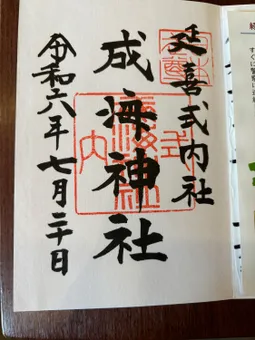 延喜式内社
成海神社
令和六年七月二十日
式
内